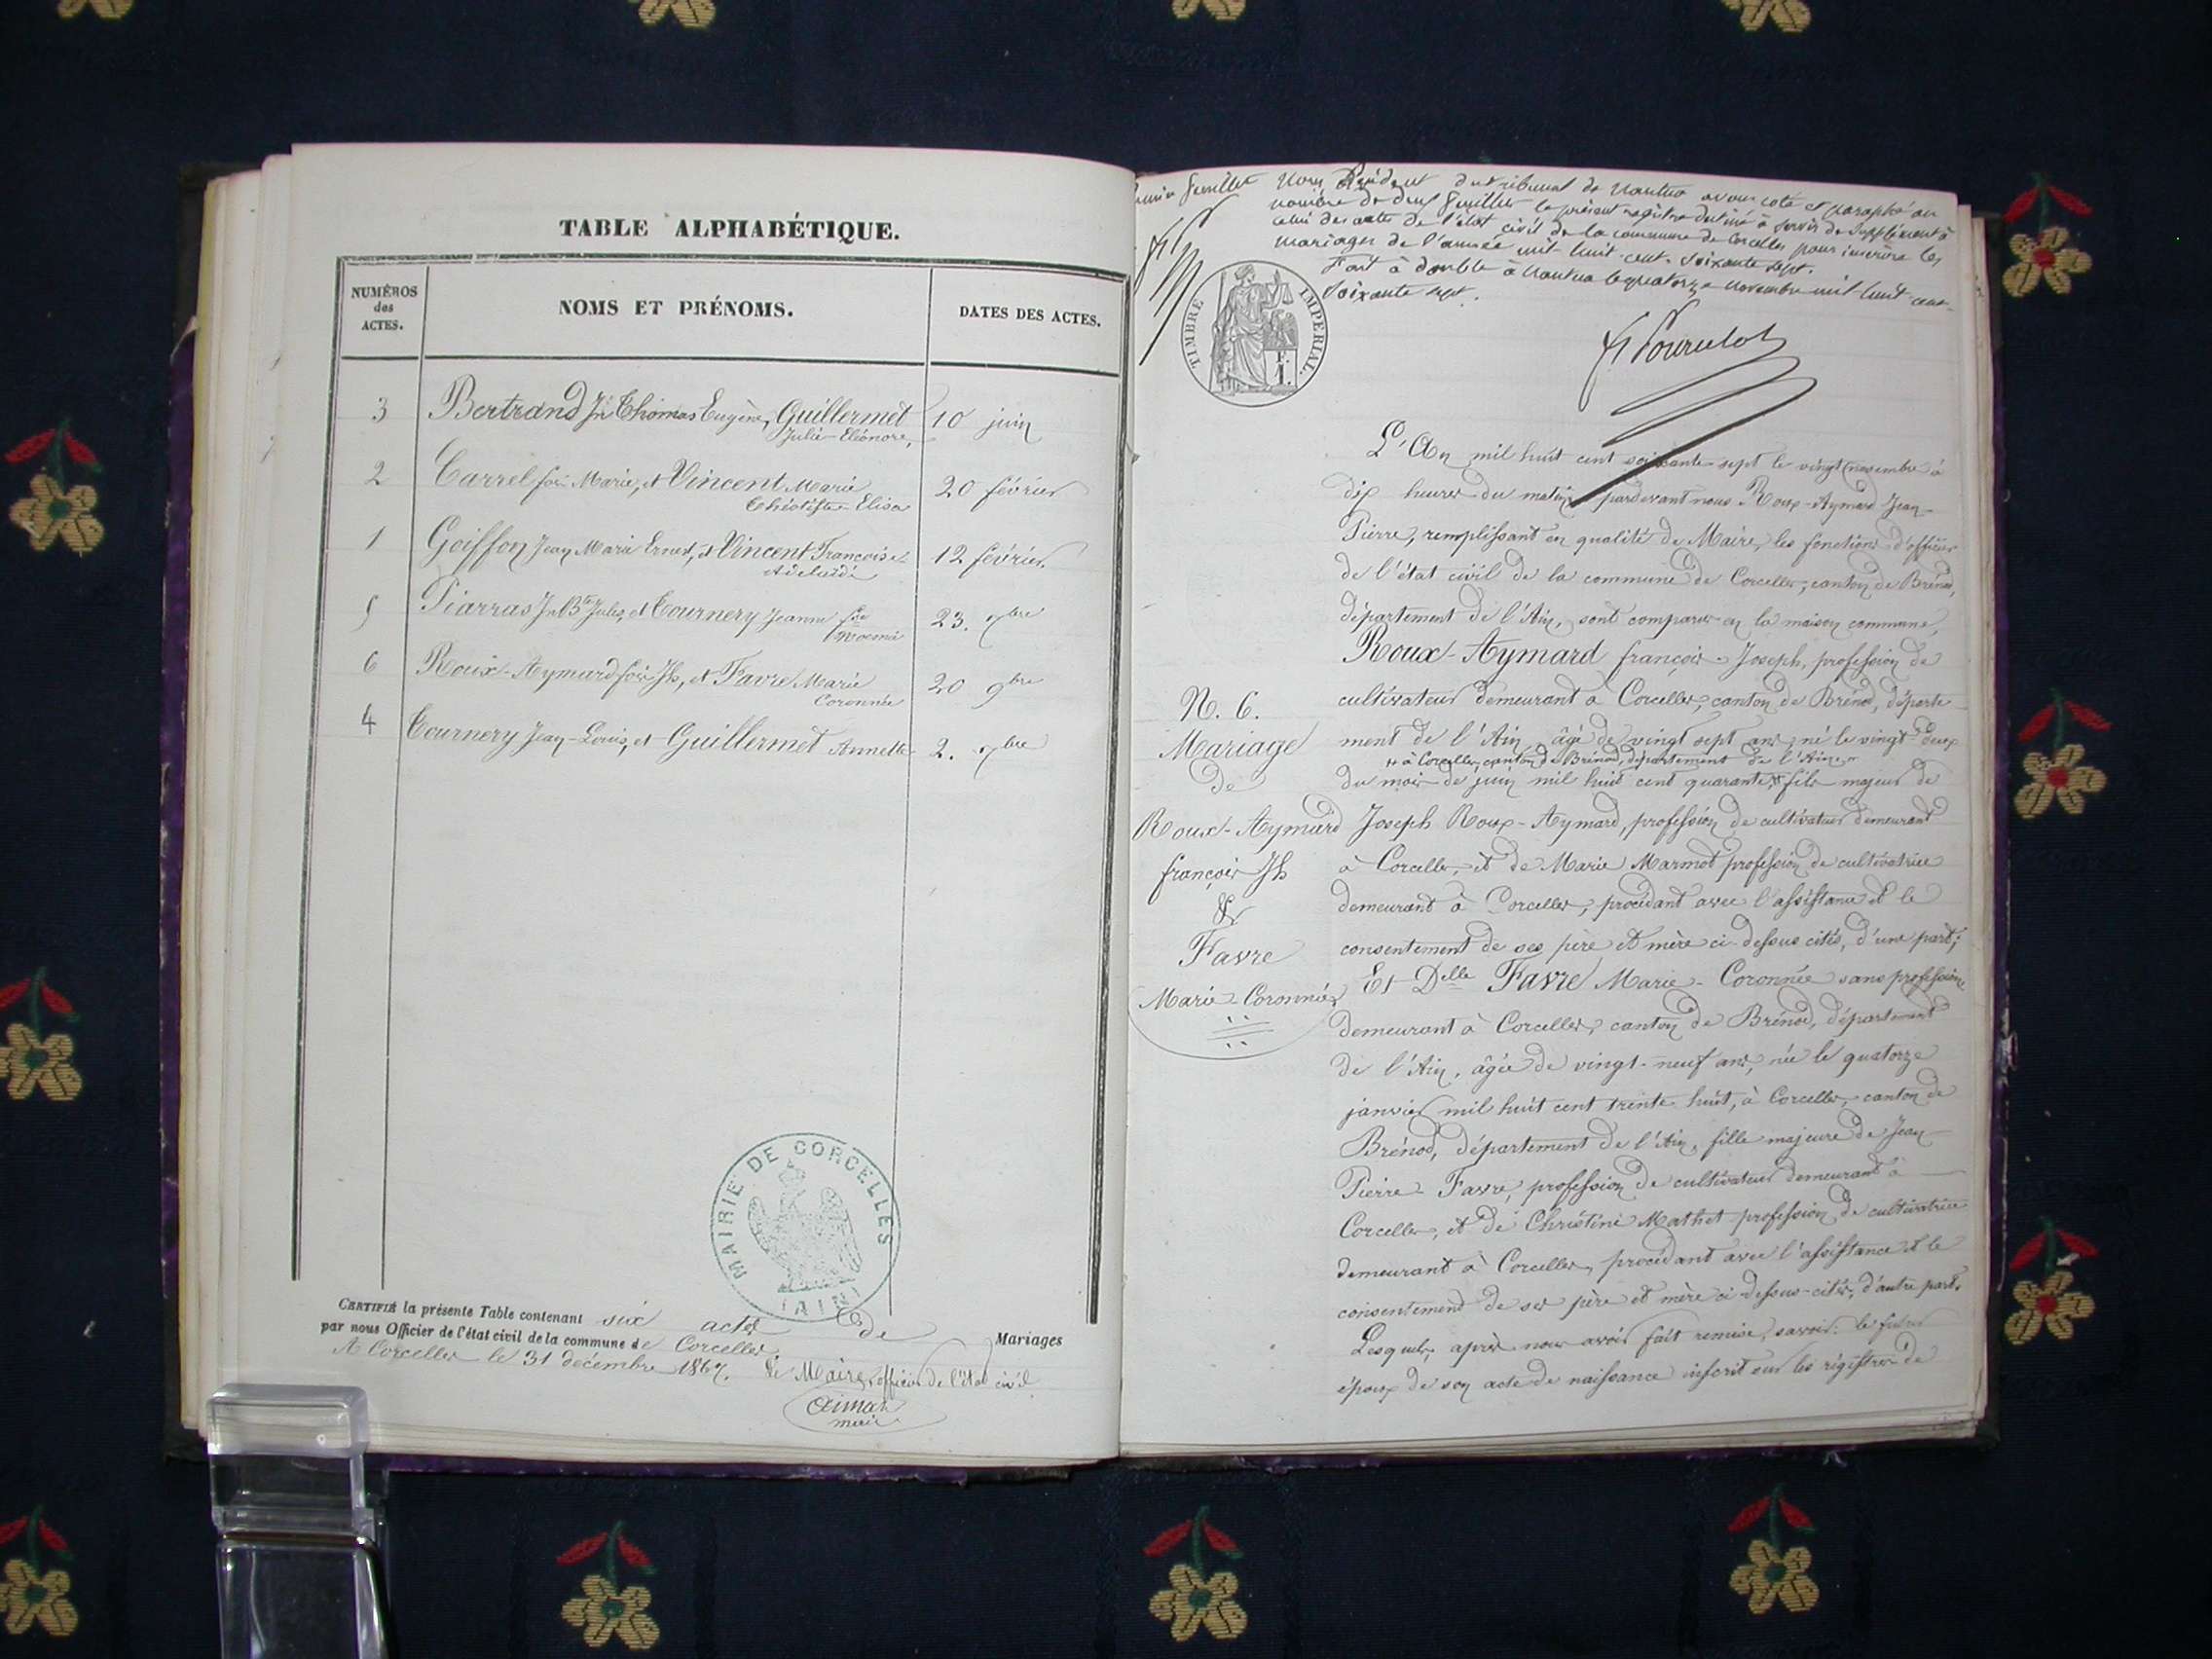 TABLE ALPHABÉTIQUE.
NUMÉROS des ACTES.
NOMS ET PRÉNOMS.
DATES DES ACTES.
3 Bertrand Jn Thomas Eugène, Guillermet 10 juin
Julie-Eléonore,
2 Carrel fois Marie, et Vincent Marie 20 février
Théotiste-Elisa
1 Goiffon Jean Marie Ernest, et Vincent Françoise 12 février
Adélaïde
5 Piarras Jn Bte Jules, et Tournery Jeanne 23. 7bre
Noémie
6 Roux-Aymard fois Jh, et Favre Marie 20 9bre
Coronnée
4 Tournery Jean-Louis, et Guillermet Annette 2. 7bre
MAIRIE DE CORCELLES
(AIN)
CERTIFIÉ la présente Table contenant six actes de Mariages
par nous Officier de l'état civil de la commune de Corcelles
A Corcelles le 31 décembre 1867. Le Maire, officier de l'état civil
Feuillet
Nous Président du tribunal de Nantua avons coté et paraphé au
nombre de deux feuillets le présent registre destiné à servir de Supplément à
celui des actes de l'état civil de la commune de Corcelles pour inscrire les
mariages de l'année mil huit-cent-soixante sept.
Fait à double à Nantua le quatorze novembre mil huit cent
soixante sept.
TIMBRE IMPÉRIAL.
L'An mil huit cent soixante-sept le vingt novembre à
dix heures du matin pardevant nous Roux-Aymard Jean-
Pierre, remplissant en qualité de Maire, les fonctions d'officier
de l'état civil de la commune de Corcelles, canton de Brénod,
département de l'Ain, sont comparus en la maison commune,
Roux-Aymard françois-Joseph, profession de
cultivateur demeurant à Corcelles, canton de Brénod, départe-
ment de l'Ain âgé de vingt sept ans, né le vingt-deux
à Corcelles, canton de Brénod, département de l'Ain
du mois de juin mil huit cent quarante, fils majeur de
Joseph Roux-Aymard, profession de cultivateur demeurant
à Corcelles, et de Marie Marmet profession de cultivatrice
demeurant à Corcelles, procédant avec l'assistance et le
consentement de ses père et mère ci-dessus cités, d'une part;
Et Delle Favre Marie-Coronnée sans profession
demeurant à Corcelles, canton de Brénod, département
de l'Ain, âgée de vingt-neuf ans, née le quatorze
janvier mil huit cent trente-huit, à Corcelles, canton de
Brénod, département de l'Ain, fille majeure de Jean-
Pierre Favre, profession de cultivateur demeurant à
Corcelles, et de Christine Mathet profession de cultivatrice
demeurant à Corcelles, procédant avec l'assistance et le
consentement de ses père et mère ci-dessus-cités, d'autre part.
Lesquels, après nous avoir fait remise, savoir: le futur
époux de son acte de naissance inscrit sur les régistres de
N. 6.
Mariage
de
Roux-Aymard
françois Jh
&
Favre
Marie-Coronnée